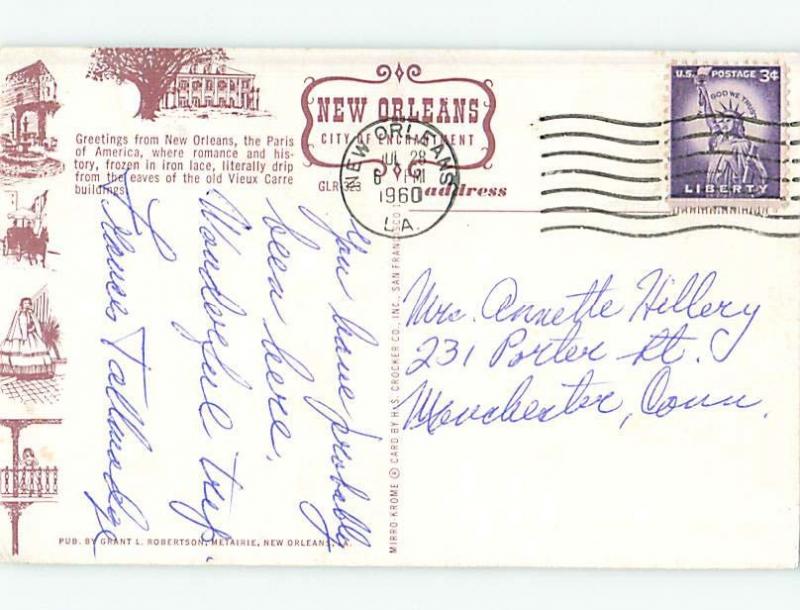 Greetings from New Orleans, the Paris
of America, where romance and his-
tory, frozen in iron lace, literally drip
from the eaves of the old Vieux Carre
buildings.
NEW ORLEANS
CITY OF ENCHANTMENT
GLR-323
address
NEW ORLEANS
JUL 28
PM
1960
LA.
U.S. POSTAGE 3¢
IN GOD WE TRUST
LIBERTY
You have probably
been here.
Wonderful trip.
Frances Tallmadge
Mrs. Annette Hillery
231 Porter St.
Manchester, Conn.
MIRRO-KROME ® CARD BY H.S. CROCKER CO., INC., SAN FRANCISCO 1
PUB. BY GRANT L. ROBERTSON, METAIRIE, NEW ORLEANS,